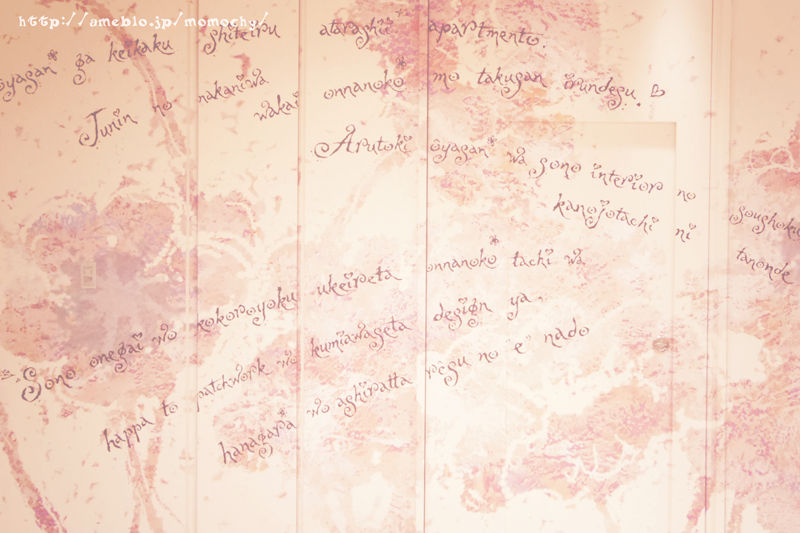 http://ameblo.jp/momochy/
ōyasan* ga keikaku shiteiru atarashii apartmento.
Junin no nakaniwa wakai onnanoko* mo takusan irundesu.♡
Arutoki ōyasan* wa sono interior no soushoku
kanojotachi ni tanonde
Sono onegai wo kokoroyoku ukeireta onnanoko* tachi wa
happa to patchwork wo kumiawaseta design ya,
hanagara wo ashiratta rēsu no "e" nado